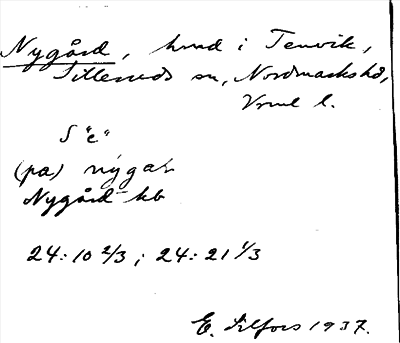 Nygård, hmd i Tenvik,
Silleruds sn, Nordmarks hd,
Vrml l.
S "e"
(på) nýgaɫ
Nygård kb
24:10 2/3; 24:21 1/3
E. Lilfors 1937.